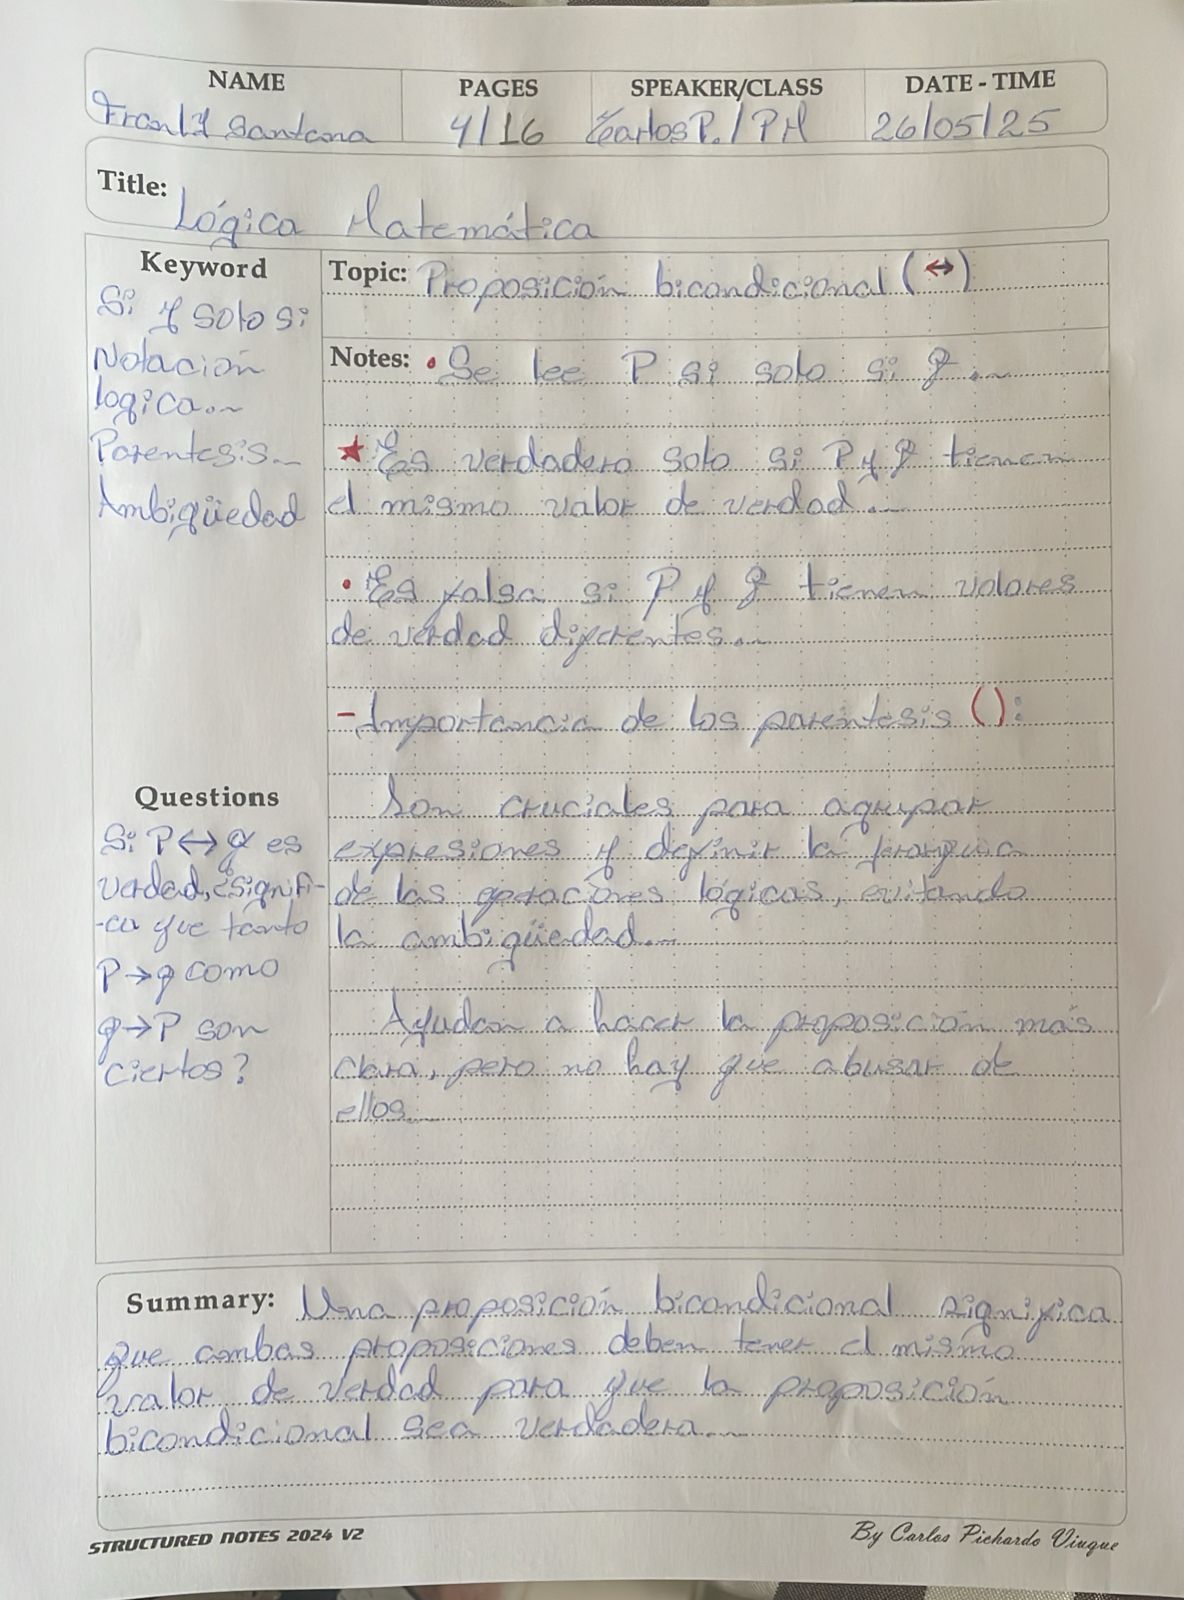 NAME PAGES SPEAKER/CLASS DATE - TIME
Santana 4/16 Carlos P. / PM 26/05/25
Title: Lógica Matemática
Keyword
Si y solo si
Notación
logica...
Parentesis...
Ambigüedad
Topic: Proposición bicondicional (↔)
Notes: • Se lee P si solo si q...
★ Es verdadero solo si P y q tienen
el mismo valor de verdad...
• Es falsa si P y q tienen valores
de verdad diferentes...
- Importancia de los parentesis ():
Son cruciales para agrupar
expresiones y definir la
de las operaciones lógicas, evitando
la ambigüedad...
Ayudan a hacer la proposición más
clara, pero no hay que abusar de
ellos...
Questions
Si P↔q es
verdad, ¿signifi-
-ca que tanto
P→q como
q→P son
ciertos?
Summary: Una proposición bicondicional significa
que ambas proposiciones deben tener el mismo
valor de verdad para que la proposición
bicondicional sea verdadera...
STRUCTURED NOTES 2024 V2
By Carlos Pichardo Viuque